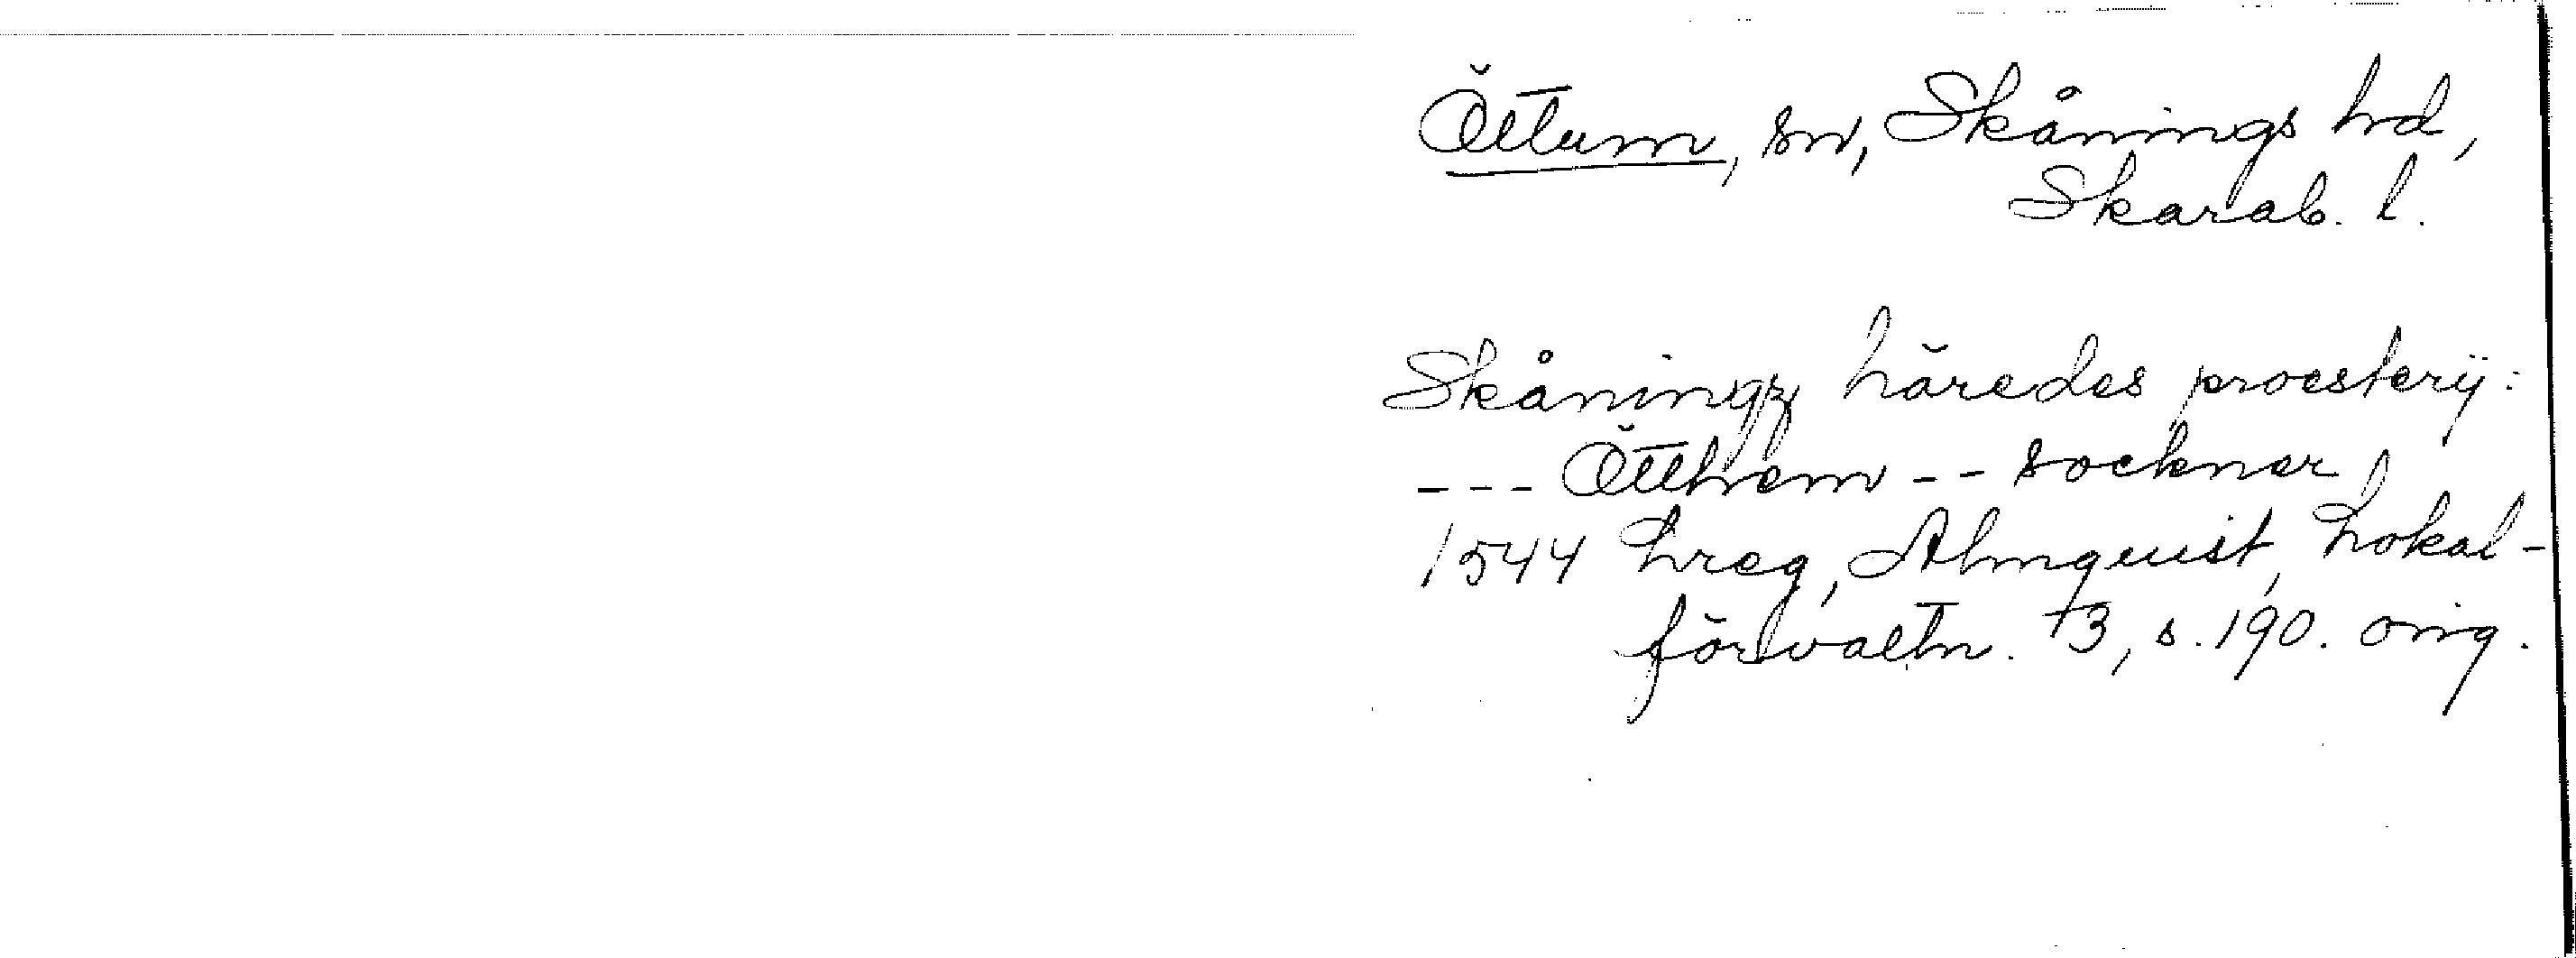 Öttum, sn, Skånings hd,
Skarab. l.
Skåningz häredes proesterij:
--- Ötthem -- socknar
1544 hreg, Almquist, Lokal-
förvaltn. 3, s. 190. orig.